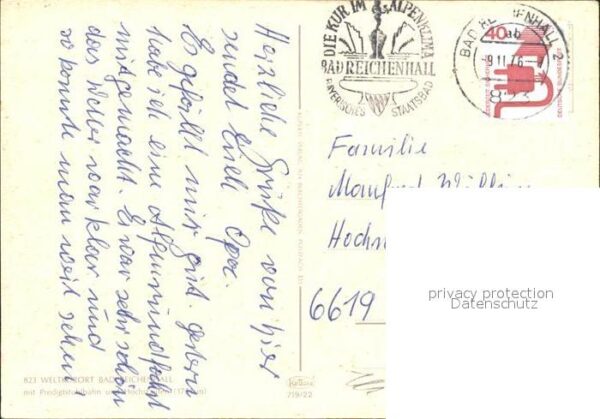 Herzliche Grüße von hier
sendet Euch Opa.
Es gefällt mir gut. gestern
habe ich eine Alpenrundfahrt
mitgemacht. Es war sehr schön
das Wetter war klar und
so konnte man weit sehen.
DIE KUR IM ALPENKLIMA
BAD REICHENHALL
BAYERISCHES STAATSBAD
BAD REICHENHALL 2
-9.11.76
823
40
Familie
Manfred
6619
privacy protection
Datenschutz
823 WELTKURORT BAD REICHENHALL
mit Predigtstuhlbahn und
719/22